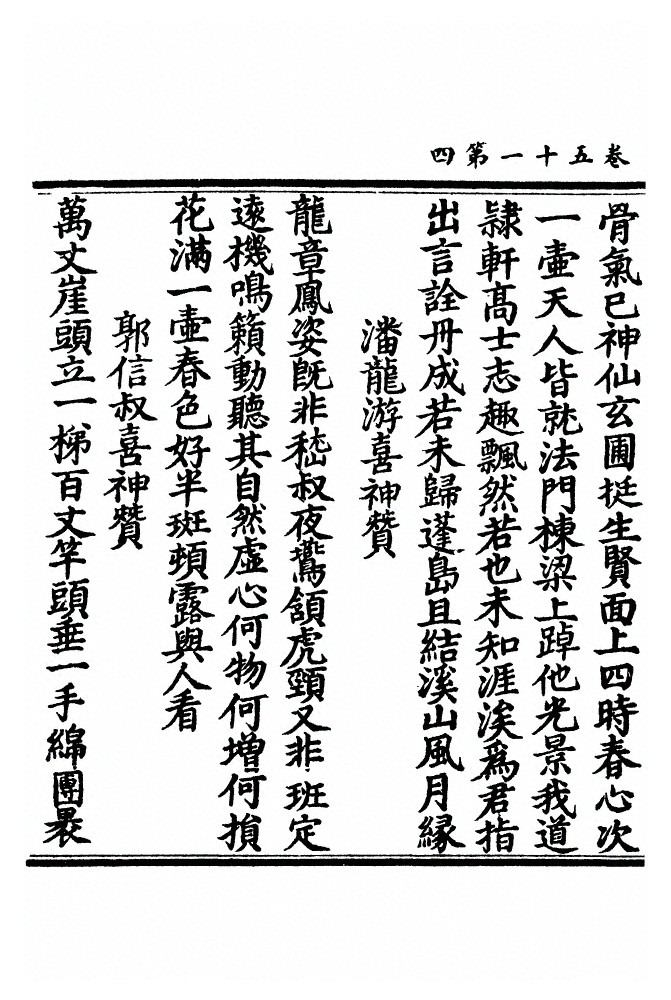 卷五十一第四
骨氣已神仙玄圃挺生賢面上四時春心次
一壷天人皆就法門棟梁上踔他光景我道
隷軒髙士志趣飄然若也未知涯涘爲君指
出言詮丹成若未歸蓬島且結溪山風月縁
潘龍游喜神贊
龍章鳳姿旣非嵇叔夜鷰頷虎頸又非班定
逺機鳴籟動聽其自然虛心何物何增何損
花滿一壷春色好半斑頓露與人看
郭信叔喜神贊
萬丈崖頭立一梯百丈竿頭垂一手綿團褁